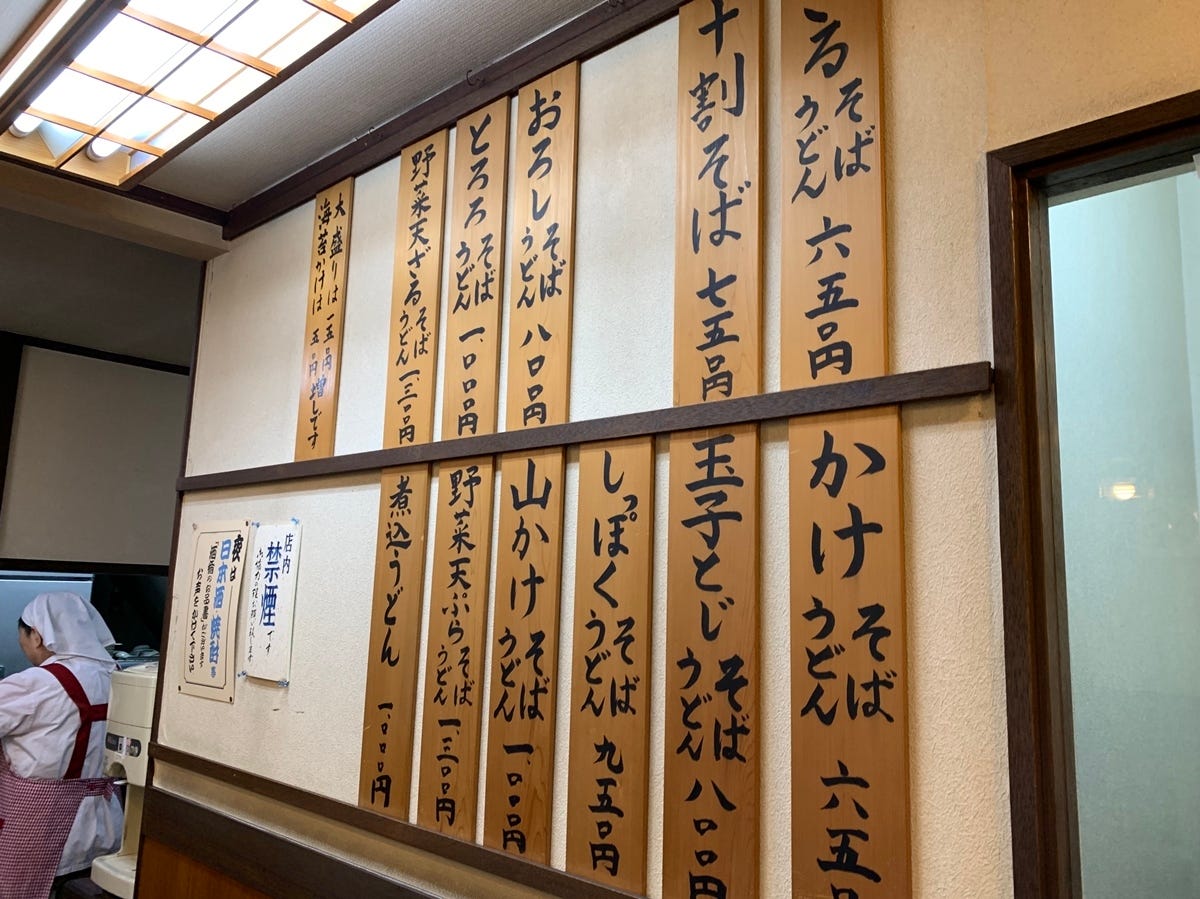 るそば
うどん 六五〇円
十割そば 七五〇円
おろしそば
うどん 八〇〇円
とろろそば
うどん 一、〇〇〇円
野菜天ざるそば
うどん 一、三〇〇円
大盛りは 一五〇円増
海苔かけは 五〇円増しです
かけそば
うどん 六五
玉子とじそば
うどん 八〇〇円
しっぽくそば
うどん 九五〇円
山かけそば
うどん 一、〇〇〇円
野菜天ぷらそば
うどん 一、三〇〇円
煮込うどん 一、〇〇〇円
店内
禁煙です
夜は
日本酒・焼酎等
「酒肴のお品書」がございます
お声をかけください